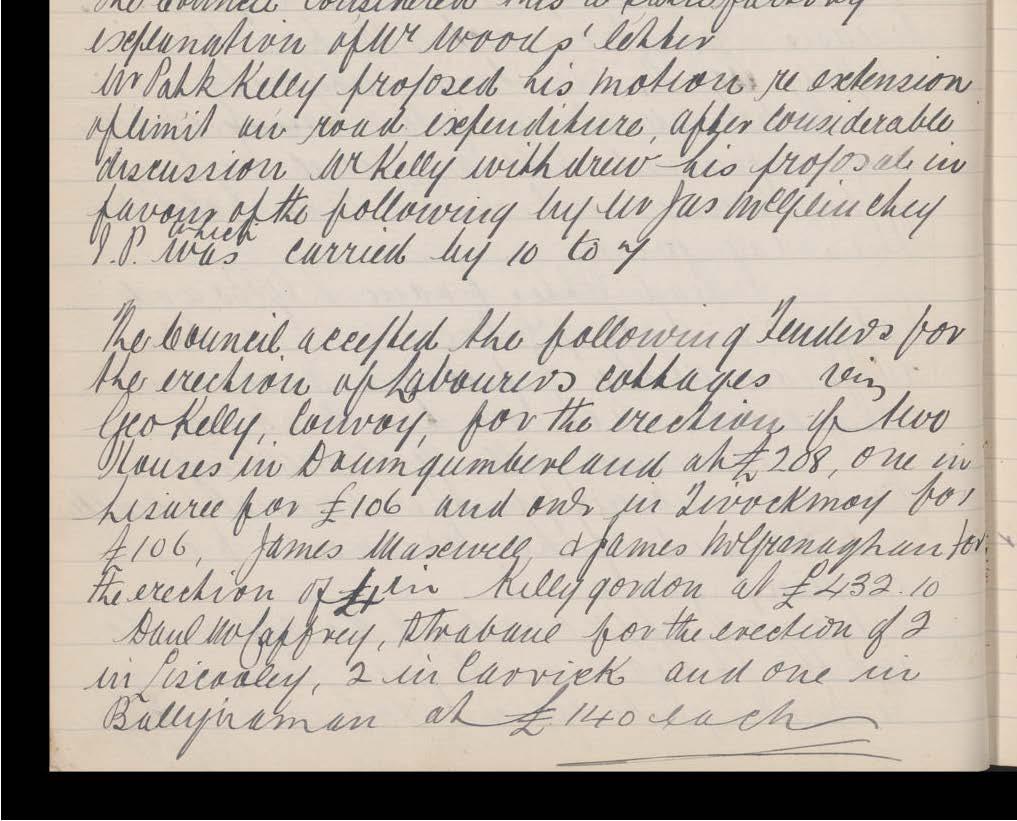 the Council considered this a satisfactory
explanation of Mr Woods' letter
Mr Patk Kelly proposed his motion re extension
of limit on road expenditure, after considerable
discussion Mr Kelly withdrew his proposal in
favour of the following by Mr Jas McGlinchey
J.P. which was carried by 10 to 7
The Council accepted the following Tenders for
the erection of Labourers cottages viz
Geo Kelly, Convoy, for the erection of two
Houses in Drumgumberland at £208, one in
Lisaree for £106 and one in Tirrockmoy for
£106, James Maxwell & James McGranaghan for
the erection of 4 in Killygordon at £432.10
Danl McCaffrey, Strabane for the erection of 2
in Liscooley, 2 in Carrick and one in
Ballynaman at £140 each